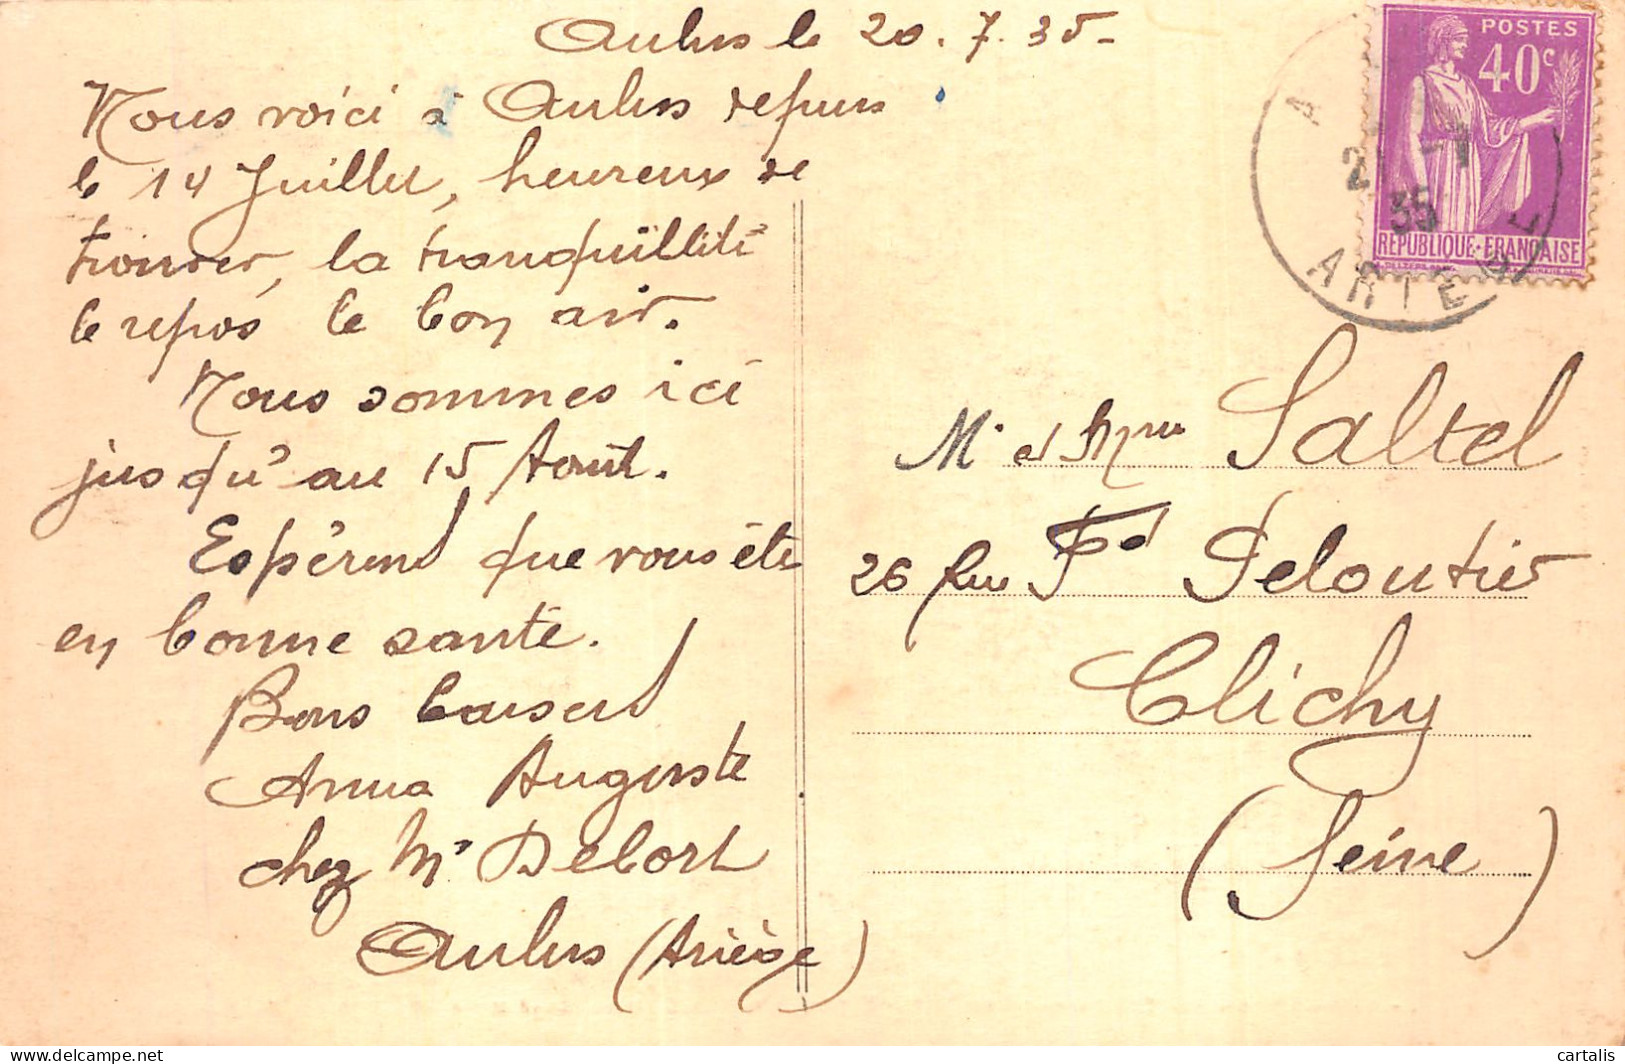 Aulus le 20.7.35-
Nous voici à Aulus depuis
le 14 Juillet, heureux de
trouver, la tranquillité
le repos le bon air.
Nous sommes ici
jusqu'au 15 Août.
Espérend que vous ête
en bonne santé.
Bons baiserd
Anna Auguste
chez Mr Delort
Aulus (Ariège)
POSTES
40c
RÉPUBLIQUE·FRANÇAISE
A
2
35
ARIE
Mr et Mme Saltel
26 Rue Fd Peloutier
Clichy
(Seine)
delcampe.net
cartalis